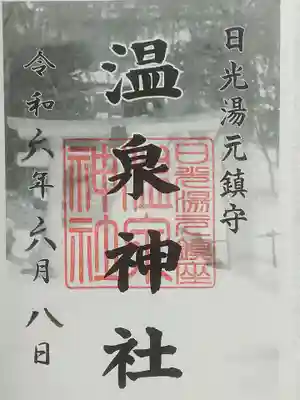 日光湯元鎮守
温泉神社
令和六年六月八日
日光湯元鎮座
温泉神社